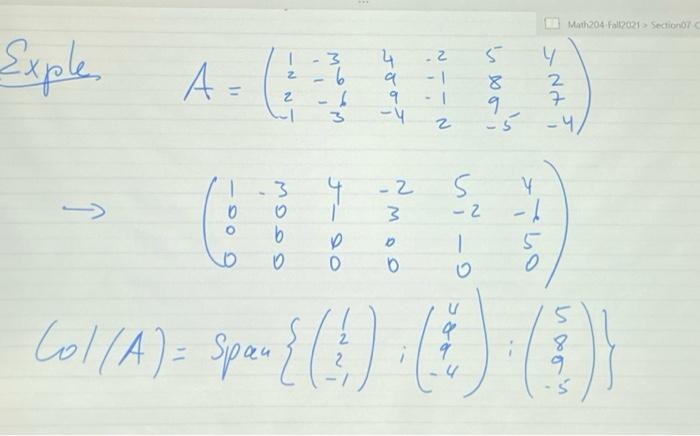 Math204-Fall2021 > Section07-C
Exple
A = ( 1 -3 4 -2 5 4
2 -6 9 -1 8 2
2 -6 9 -1 9 7
-1 3 -4 2 -5 -4 )
→ ( 1 -3 4 -2 5 4
0 0 1 3 -2 -6
0 0 0 0 1 5
0 0 0 0 0 0 )
Col(A) = Span { ( 1 2 2 -1 ) ; ( 4 9 9 -4 ) ; ( 5 8 9 -5 ) }